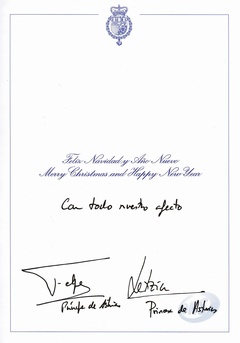 Feliz Navidad y Año Nuevo
Merry Christmas and Happy New Year
Con todo nuestro afecto
Felipe Letizia
Príncipe de Asturias Princesa de Asturias